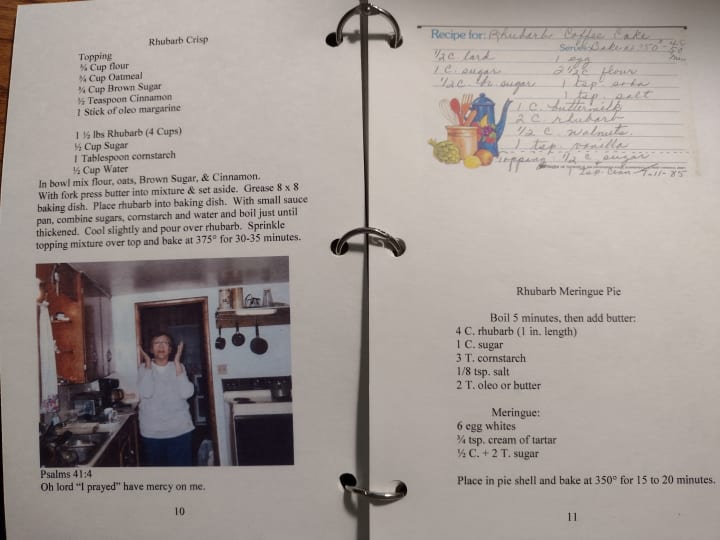 Rhubarb Crisp
Topping
¾ Cup flour
¾ Cup Oatmeal
¾ Cup Brown Sugar
½ Teaspoon Cinnamon
1 Stick of oleo margarine
1 ½ lbs Rhubarb (4 Cups)
½ Cup Sugar
1 Tablespoon cornstarch
½ Cup Water
In bowl mix flour, oats, Brown Sugar, & Cinnamon.
With fork press butter into mixture & set aside. Grease 8 x 8
baking dish. Place rhubarb into baking dish. With small sauce
pan, combine sugars, cornstarch and water and boil just until
thickened. Cool slightly and pour over rhubarb. Sprinkle
topping mixture over top and bake at 375° for 30-35 minutes.
Psalms 41:4
Oh lord “I prayed” have mercy on me.
10
Recipe for: Rhubarb Coffee Cake
Serves Bake at 350° 45
50
min
½ C. lard 1 egg
1 C. sugar 2½ C flour
½ C. br. sugar 1 tsp. soda
1 tsp. salt
1 C. buttermilk
2 C rhubarb
½ C. walnuts.
1 tsp. vanilla
Topping: ½ C. sugar
1 tsp. Cinn 7-11-85
Rhubarb Meringue Pie
Boil 5 minutes, then add butter:
4 C. rhubarb (1 in. length)
1 C. sugar
3 T. cornstarch
1/8 tsp. salt
2 T. oleo or butter
Meringue:
6 egg whites
¾ tsp. cream of tartar
½ C. + 2 T. sugar
Place in pie shell and bake at 350° for 15 to 20 minutes.
11